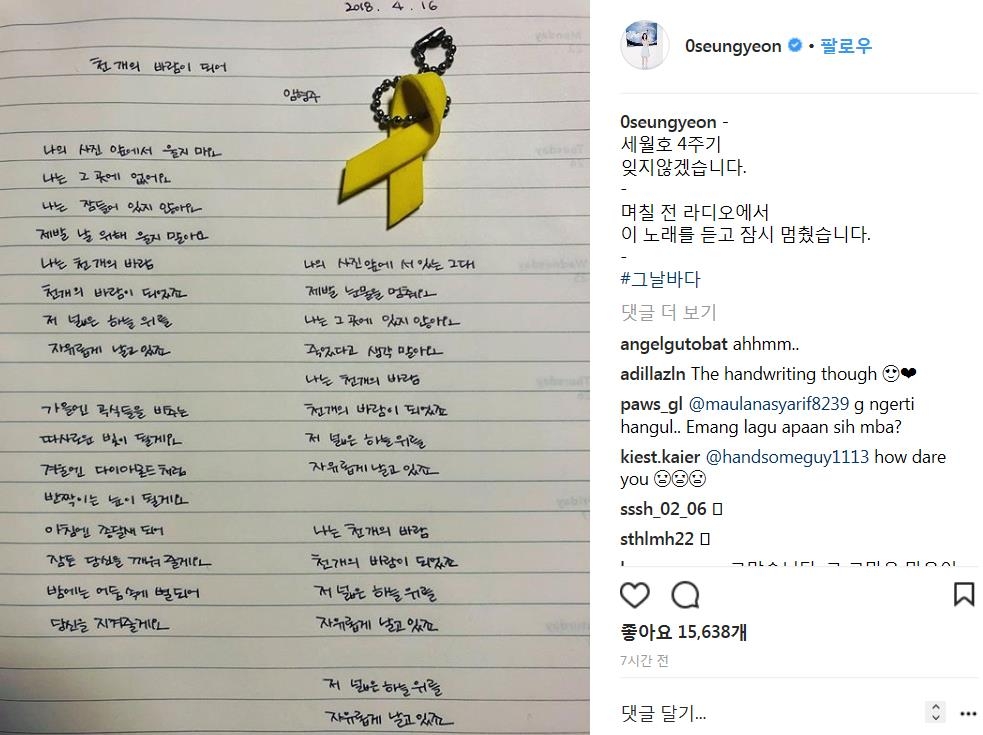 2018. 4. 16
천 개의 바람이 되어
임형주
나의 사진 앞에서 울지 마요
나는 그 곳에 없어요
나는 잠들어 있지 않아요
제발 날 위해 울지 말아요
나는 천 개의 바람
천개의 바람이 되었죠
저 넓은 하늘 위를
자유롭게 날고 있죠
가을엔 곡식들을 비추는
따사로운 빛이 될게요
겨울엔 다이아몬드처럼
반짝이는 눈이 될게요
아침엔 종달새 되어
잠든 당신을 깨워 줄게요
밤에는 어둠 속에 별 되어
당신을 지켜줄게요
나의 사진 앞에 서 있는 그대
제발 눈물을 멈춰요
나는 그 곳에 있지 않아요
죽었다고 생각 말아요
나는 천개의 바람
천개의 바람이 되었죠
저 넓은 하늘 위를
자유롭게 날고 있죠
나는 천 개의 바람
천개의 바람이 되었죠
저 넓은 하늘 위를
자유롭게 날고 있죠
저 넓은 하늘 위를
자유롭게 날고 있죠
0seungyeon • 팔로우
0seungyeon -
세월호 4주기
잊지않겠습니다.
-
며칠 전 라디오에서
이 노래를 듣고 잠시 멈췄습니다.
-
#그날바다
댓글 더 보기
angelgutobat ahhmm..
adillazln The handwriting though 🙄❤
paws_gl @maulanasyarif8239 g ngerti
hangul.. Emang lagu apaan sih mba?
kiest.kaier @handsomeguy1113 how dare
you 😢😢😢
sssh_02_06
sthlmh22
좋아요 15,638개
7시간 전
댓글 달기...